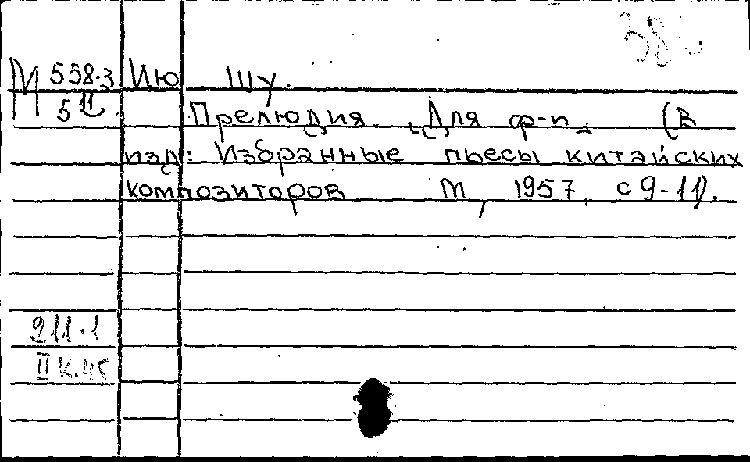 М 558.3 Ию Шу.
5
Прелюдия. Для ф-п. (В
изд: Избранные пьесы китайских
композиторов М, 1957, с 9-11).
211.1
II